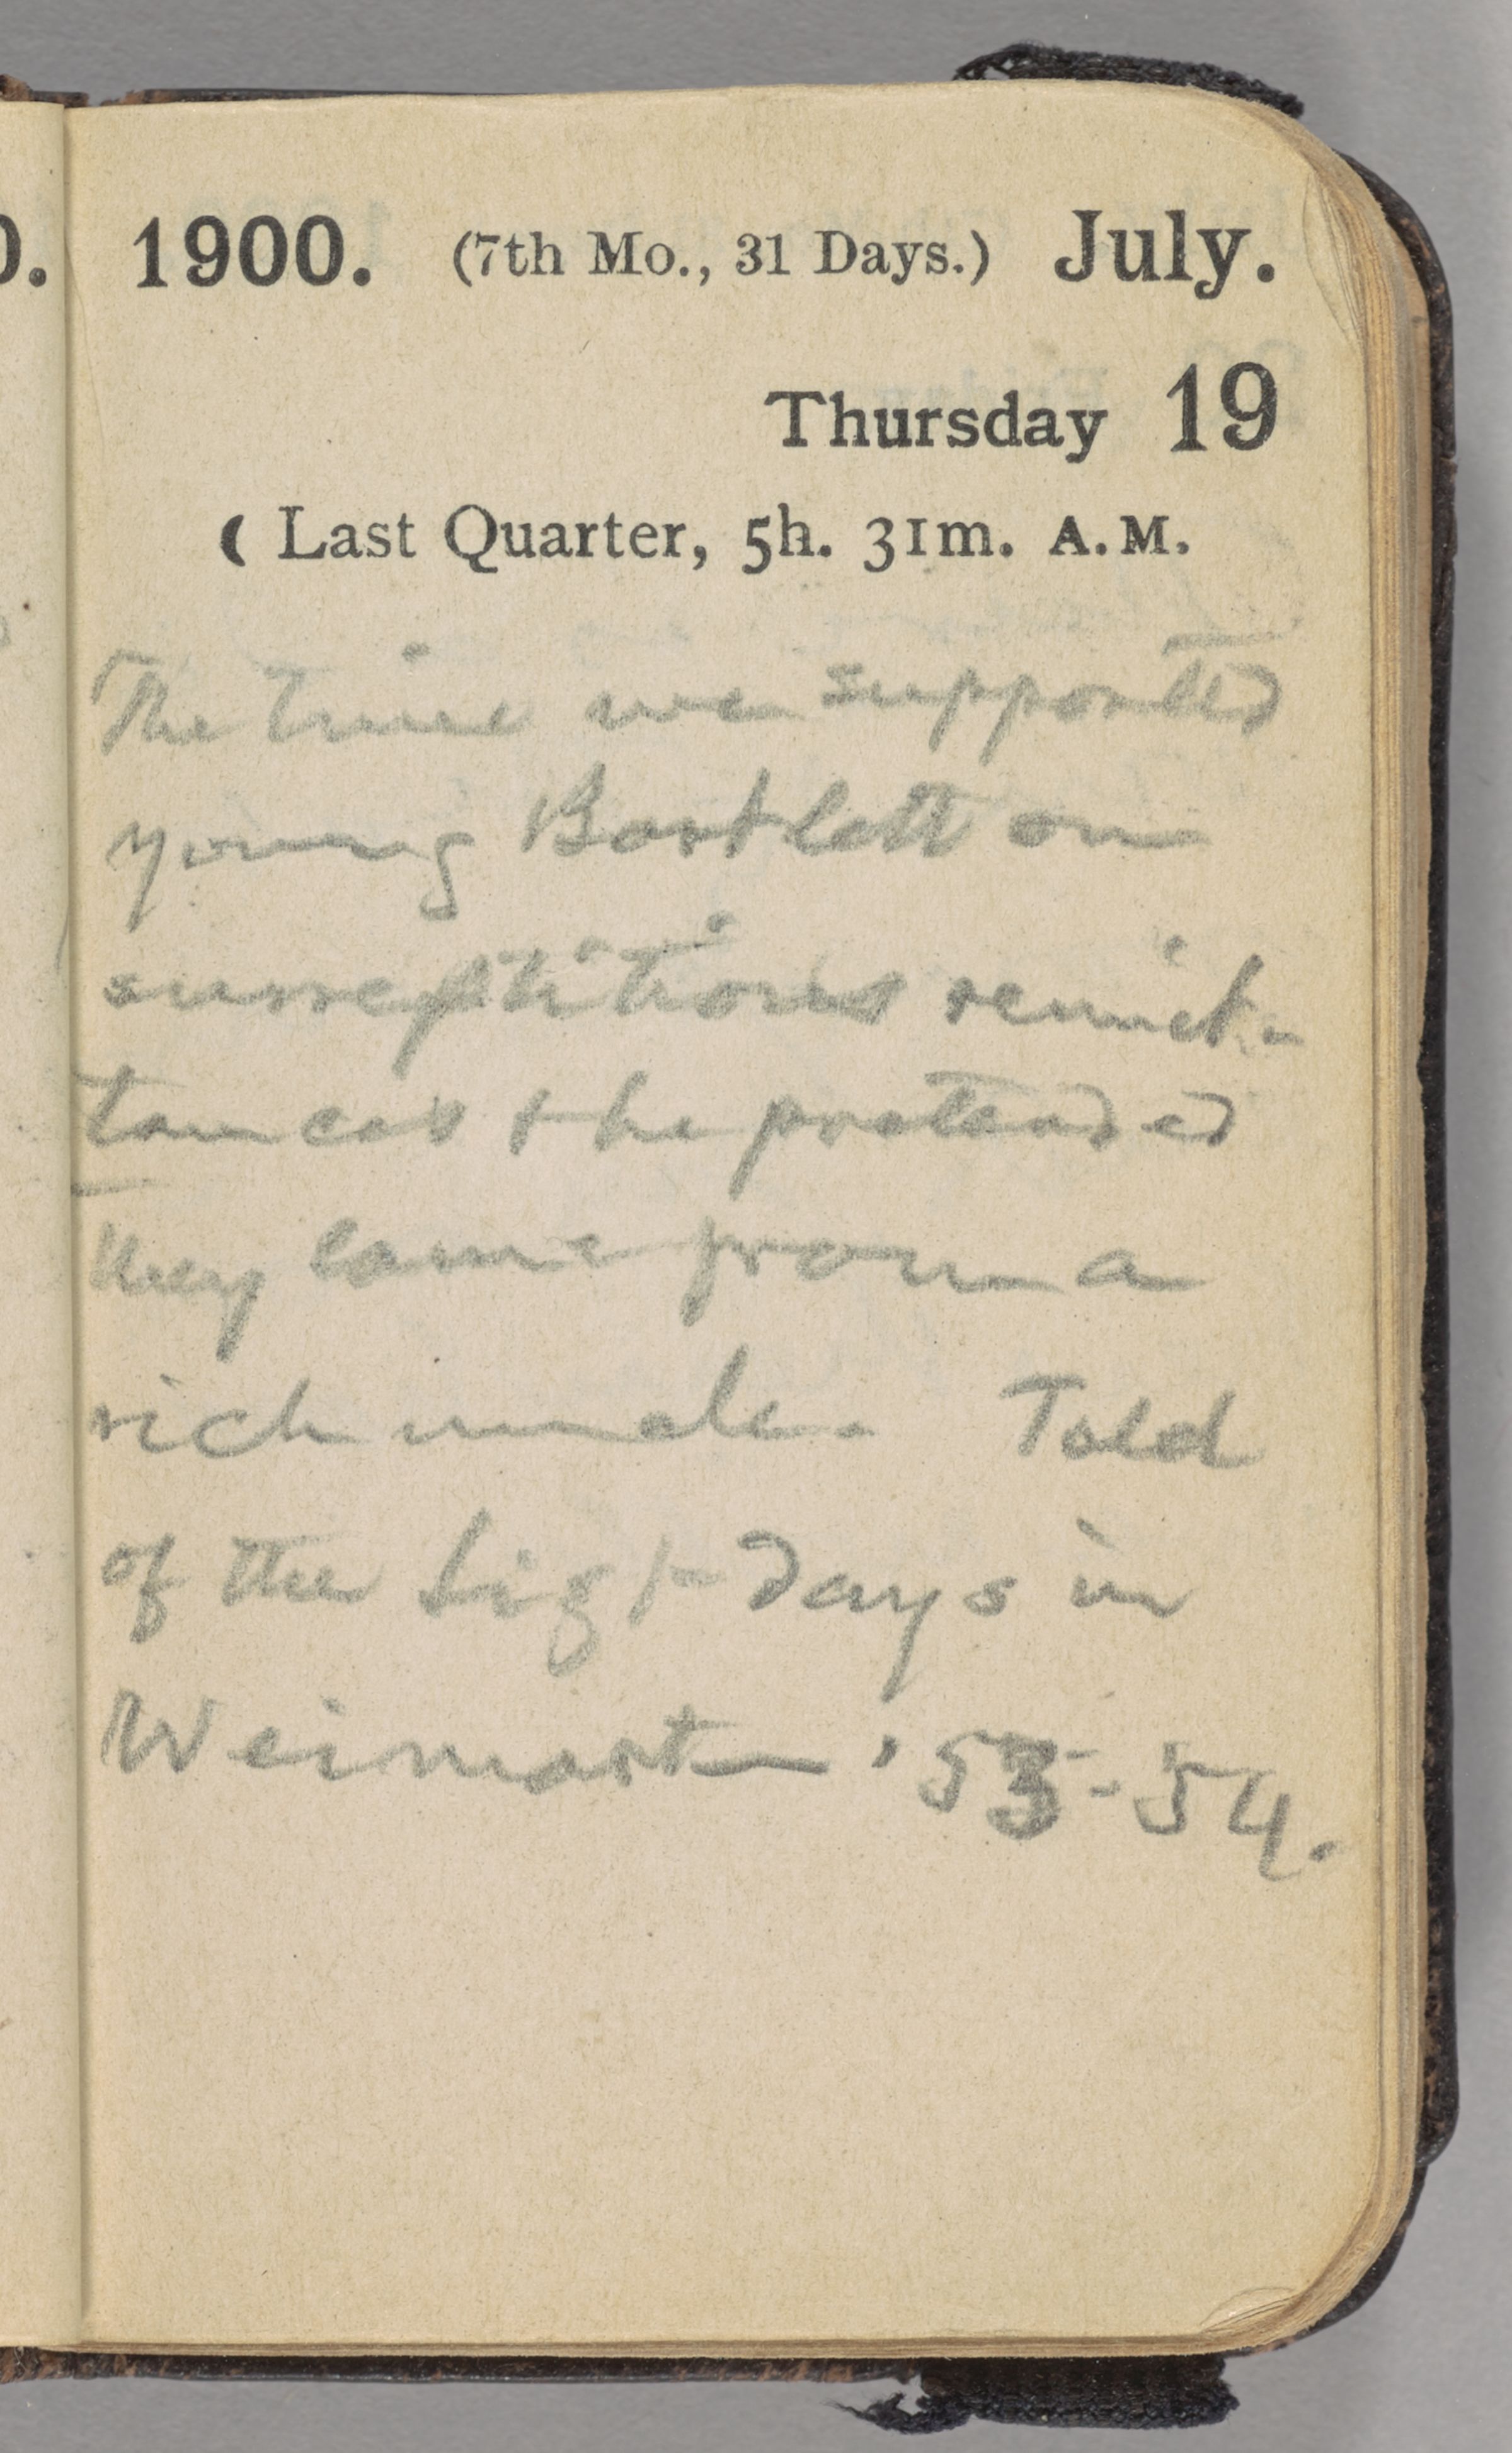 0. 1900. (7th Mo., 31 Days.) July.
Thursday 19
( Last Quarter, 5h. 31m. A.M.
The time we supported
young Bartlett on
surreptitious remit-
tances & he pretended
they came from a
rich uncle. Told
of the Liszt days in
Weimar '53-54.